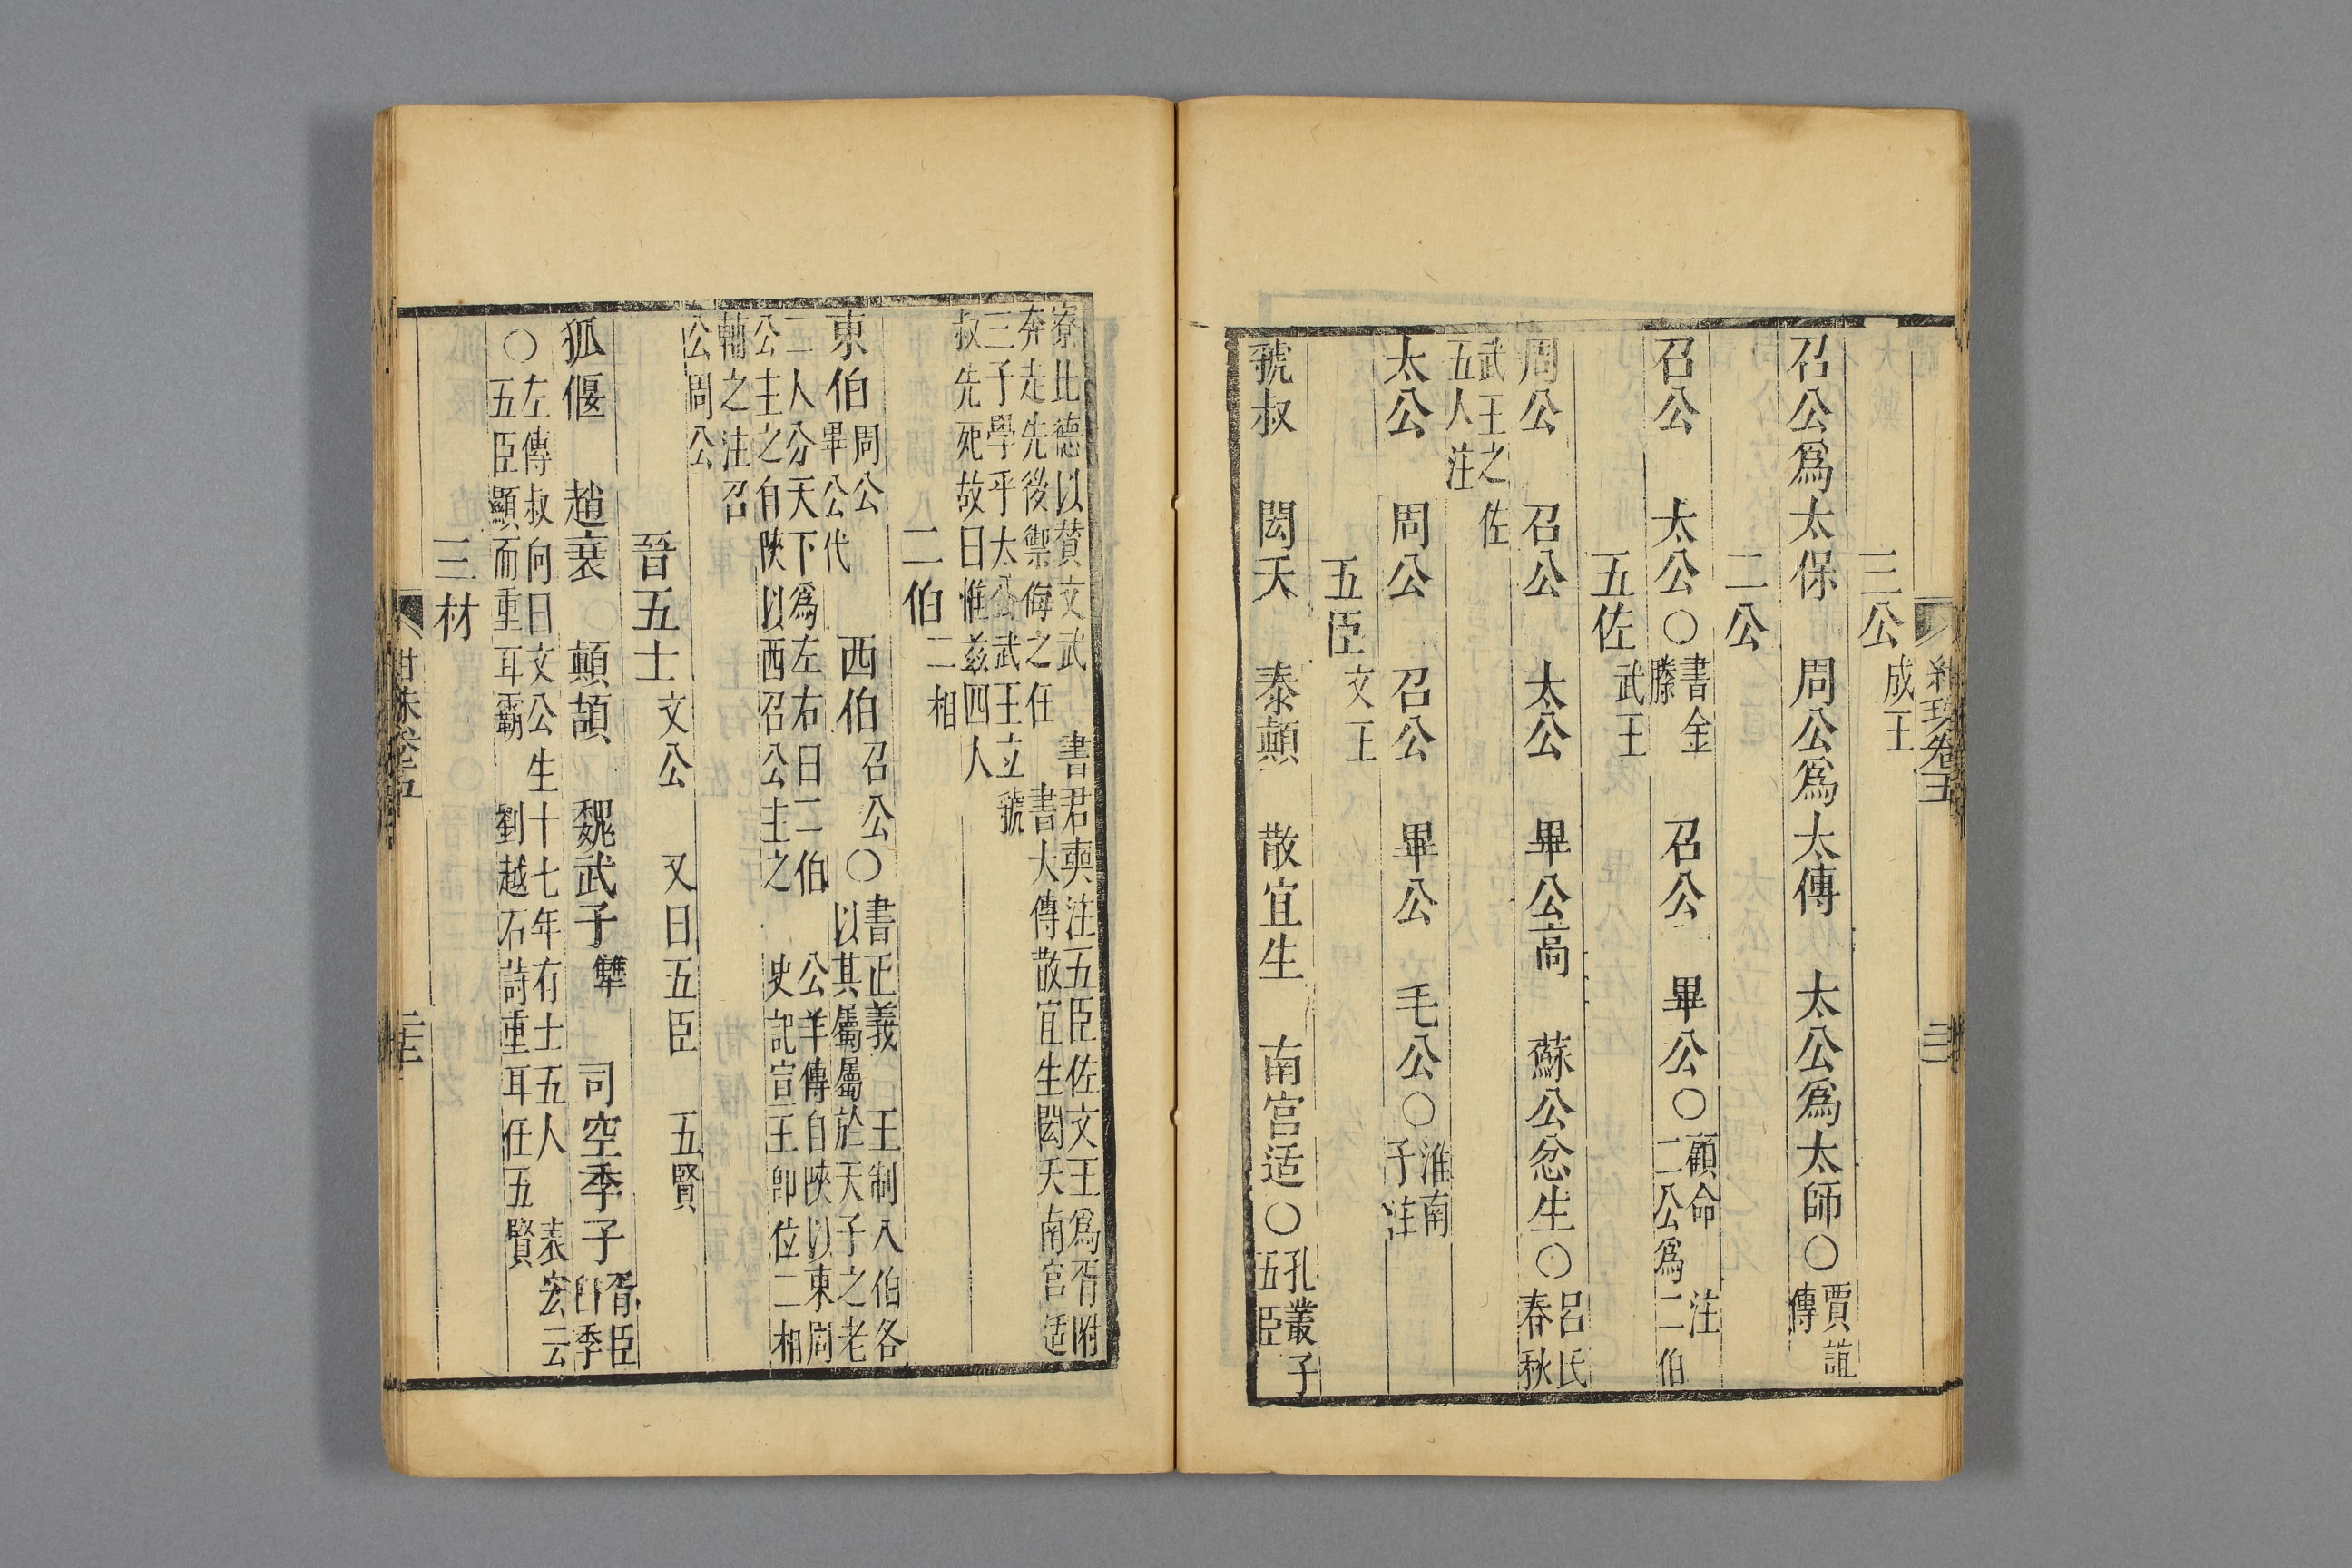 三公成王
召公爲太保　周公爲太傅　太公爲太師○賈誼傳
二公
召公　太公○書金縢　召公　畢公○顧命注二公爲二伯
五佐武王
周公　召公　太公　畢公高　蘇公忿生○呂氏春秋
武王之佐五人注
太公　周公　召公　畢公　毛公○淮南子注
五臣文王
虢叔　閎夭　泰顚　散宜生　南宮适○孔叢子五臣
寮比德以賛文武　書君奭注五臣佐文王爲胥附
奔走先後禦侮之任　書大傳散宜生閎夭南宮适
三子學乎太公武王立虢
叔先死故曰惟茲四人
二伯二相
東伯周公畢公代　西伯召公○書正義　王制八伯各以其屬屬於天子之老
二人分天下爲左右曰二伯　公羊傳自陝以東周
公主之自陝以西召公主之　史記宣王卽位二相
輔之注召
公周公
晉五士文公　又曰五臣　五賢
狐偃　趙衰　顚頡　魏武子犫　司空季子胥臣臼季
○左傳叔向曰文公生十七年有士五人　表宏云
五臣顯而重耳霸　劉越石詩重耳任五賢
三材